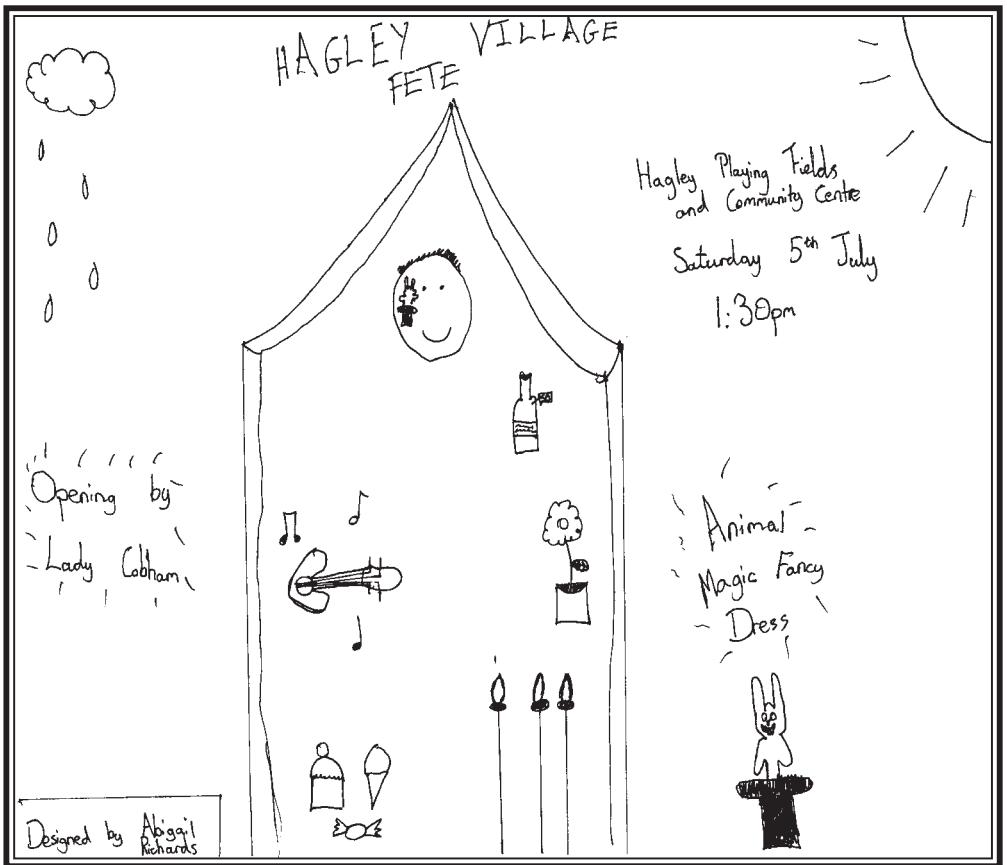 HAGLEY VILLAGE
FETE
Hagley Playing Fields
and Community Centre
Saturday 5th July
1:30pm
Opening by
Lady Cobham
Animal
Magic Fancy
Dress
Designed by Abiggil
Richards